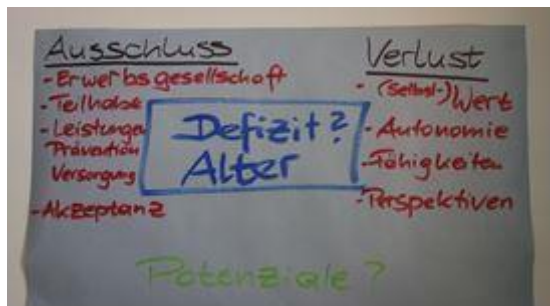 Ausschluss
- Erwerbsgesellschaft
- Teilhabe
- Leistungen
Prävention
Versorgung
- Akzeptanz
Defizit?
Alter
Verlust
- (Selbst-)Wert
- Autonomie
- Fähigkeiten
- Perspektiven
Potenziale?